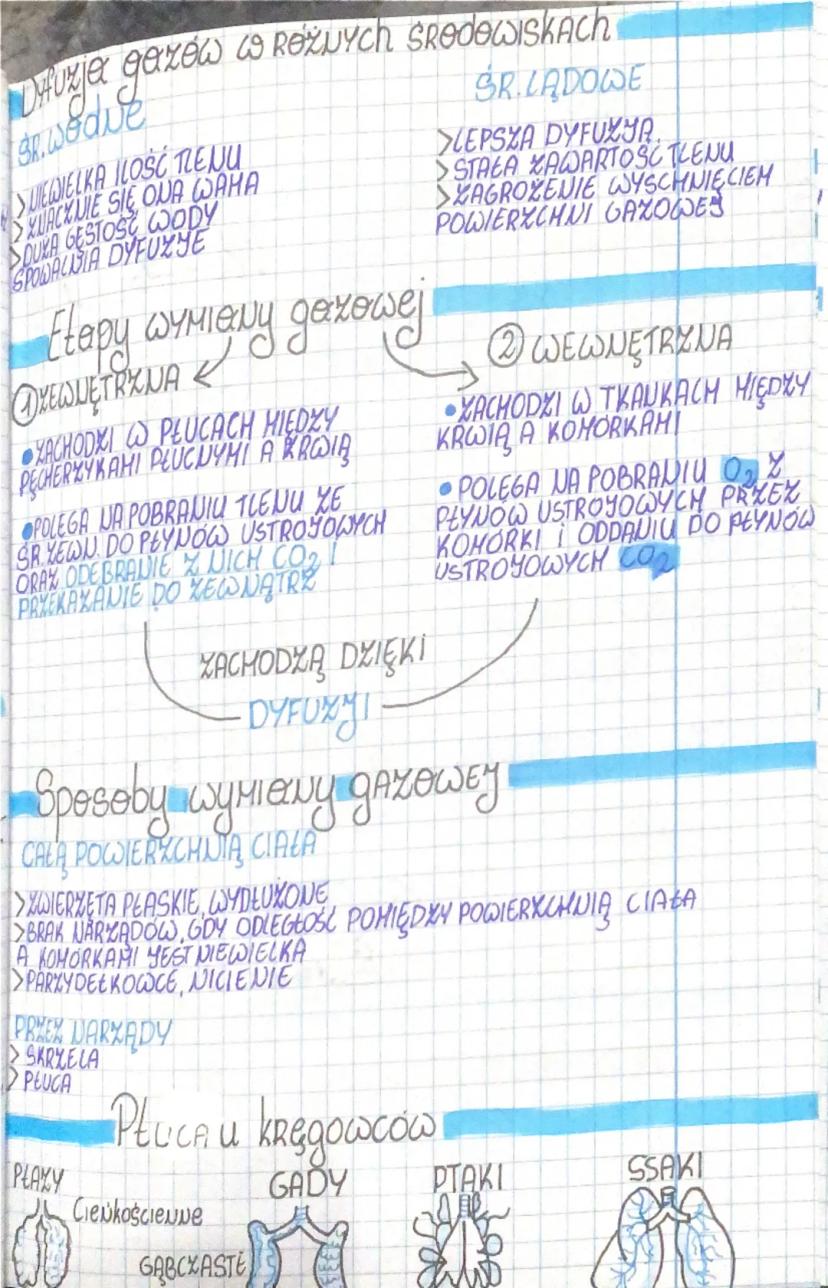 Dyfuzja gazów w różnych środowiskach
ŚR. WODNE
> NIEWIELKA ILOŚĆ TLENU
> ZNACZNIE SIĘ ONA WAHA
> DUŻA GĘSTOŚĆ WODY
SPOWALNIA DYFUZJE
ŚR. LĄDOWE
> LEPSZA DYFUZJA
> STAŁA ZAWARTOŚĆ TLENU
> ZAGROŻENIE WYSCHNIĘCIEM
POWIERZCHNI GAZOWEJ
Etapy wymiany gazowej
① ZEWNĘTRZNA
• ZACHODZI W PŁUCACH MIĘDZY
PĘCHERZYKAMI PŁUCNYMI A KRWIĄ
• POLEGA NA POBRANIU TLENU ZE
ŚR. ZEWN. DO PŁYNÓW USTROJOWYCH
ORAZ ODEBRANIE Z NICH CO2 I
PRZEKAZANIE DO ZEWNĄTRZ
② WEWNĘTRZNA
• ZACHODZI W TKANKACH MIĘDZY
KRWIĄ A KOMÓRKAMI
• POLEGA NA POBRANIU O2 Z
PŁYNÓW USTROJOWYCH PRZEZ
KOMÓRKI I ODDANIU DO PŁYNÓW
USTROJOWYCH CO2
ZACHODZĄ DZIĘKI
DYFUZJI
Sposoby wymiany gazowej
CAŁĄ POWIERZCHNIĄ CIAŁA
> ZWIERZĘTA PŁASKIE, WYDŁUŻONE
> BRAK NARZĄDÓW, GDY ODLEGŁOŚĆ POMIĘDZY POWIERZCHNIĄ CIAŁA
A KOMÓRKAMI JEST NIEWIELKA
> PARZYDEŁKOWCE, NICIENIE
PRZEZ NARZĄDY
> SKRZELA
> PŁUCA
Płuca u kręgowców
PŁAZY
Cieńkościenne
GADY
GĄBCZASTE
PTAKI
SSAKI